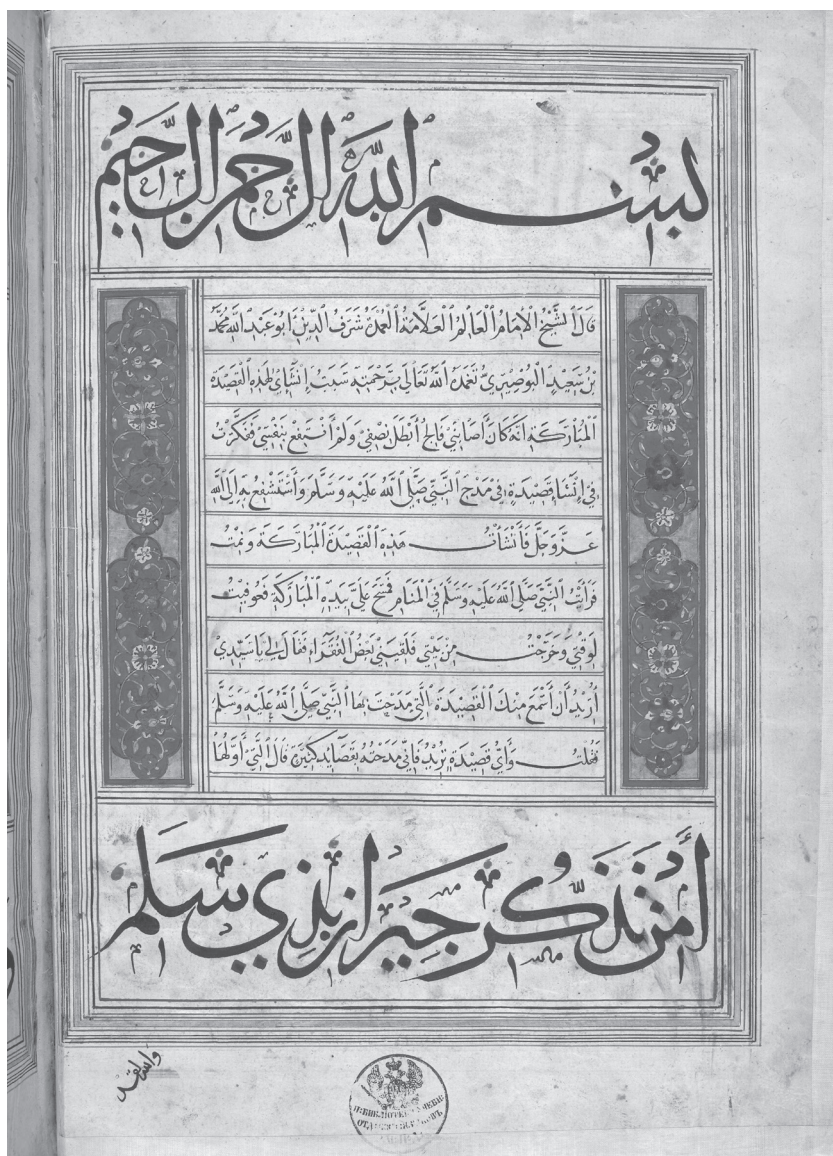 بِسْمِ اللَّهِ الرَّحْمَنِ الرَّحِيمِ
قَالَ الشَّيْخُ الْإِمَامُ الْعَالِمُ الْعَلَّامَةُ الْعُمْدَةُ شَرَفُ الدِّينِ أَبُو عَبْدِ اللَّهِ مُحَمَّدُ
بْنُ سَعِيدٍ الْبُوصِيرِيُّ تَغَمَّدَهُ اللَّهُ تَعَالَى بِرَحْمَتِهِ سَبَبُ إِنْشَائِي لِهَذِهِ الْقَصِيدَةِ
الْمُبَارَكَةِ أَنَّهُ كَانَ أَصَابَنِي فَالِجٌ أَبْطَلَ نِصْفِي وَلَمْ أَنْتَفِعْ بِنَفْسِي فَفَكَّرْتُ
فِي إِنْشَاءِ قَصِيدَةٍ فِي مَدْحِ النَّبِيِّ صَلَّى اللَّهُ عَلَيْهِ وَسَلَّمَ وَأَسْتَشْفِعُ بِهِ إِلَى اللَّهِ
عَزَّ وَجَلَّ فَأَنْشَأْتُ هَذِهِ الْقَصِيدَةَ الْمُبَارَكَةَ وَنِمْتُ
فَرَأَيْتُ النَّبِيَّ صَلَّى اللَّهُ عَلَيْهِ وَسَلَّمَ فِي الْمَنَامِ فَمَسَحَ عَلَيَّ بِيَدِهِ الْمُبَارَكَةِ فَعُوفِيتُ
لِوَقْتِي وَخَرَجْتُ مِنْ بَيْتِي فَلَقِيَنِي بَعْضُ الْفُقَرَاءِ فَقَالَ لِي يَا سَيِّدِي
أُرِيدُ أَنْ أَسْمَعَ مِنْكَ الْقَصِيدَةَ الَّتِي مَدَحْتَ بِهَا النَّبِيَّ صَلَّى اللَّهُ عَلَيْهِ وَسَلَّمَ
فَقُلْتُ وَأَيَّ قَصِيدَةٍ تُرِيدُ فَإِنِّي مَدَحْتُهُ بِقَصَائِدَ كَثِيرَةٍ قَالَ الَّتِي أَوَّلُهَا
أَمِنْ تَذَكُّرِ جِيرَانٍ بِذِي سَلَمٍ